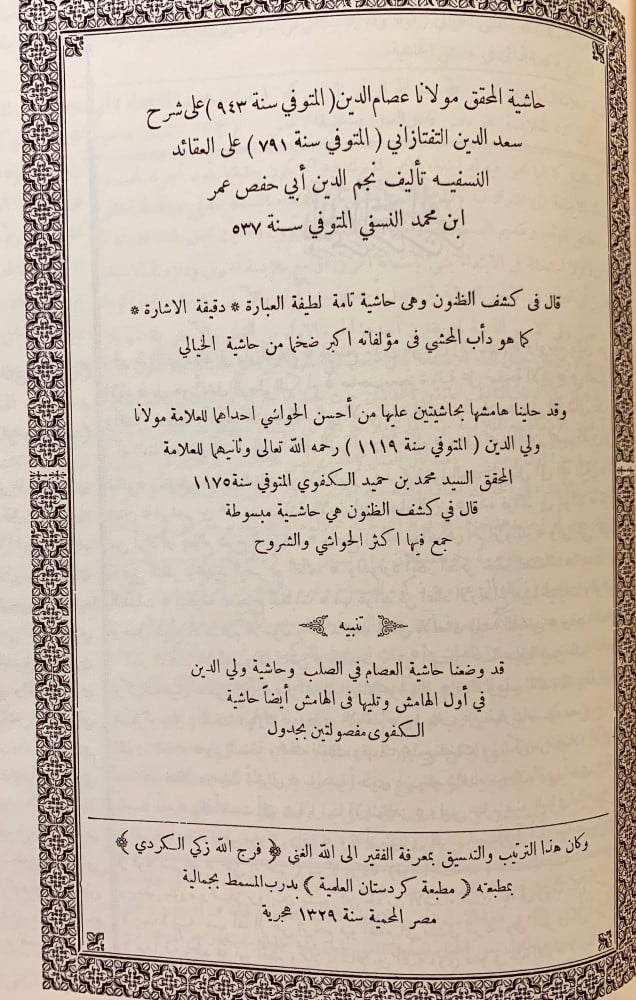 حاشية المحقق مولانا عصام الدين (المتوفي سنة ٩٤٣) على شرح
سعد الدين التفتازاني ( المتوفي سنة ٧٩١ ) على العقائد
النسفيه تأليف نجم الدين أبي حفص عمر
ابن محمد النسفي المتوفي سنة ٥٣٧
قال فى كشف الظنون وهى حاشية تامة لطيفة العبارة * دقيقة الاشارة *
كما هو دأب المحشي فى مؤلفاته اكبر ضخما من حاشية الخيالي
وقد حلينا هامشها بحاشيتين عليها من أحسن الحواشي احداهما للعلامة مولانا
ولي الدين ( المتوفي سنة ١١١٩ ) رحمه الله تعالى وثانيهما للعلامة
المحقق السيد محمد بن حميد الكفوي المتوفي سنة ١١٧٥
قال في كشف الظنون هي حاشية مبسوطة
جمع فيها اكثر الحواشي والشروح
تنبيه
قد وضعنا حاشية العصام في الصلب وحاشية ولي الدين
في أول الهامش وتليها فى الهامش أيضاً حاشية
الكفوى مفصولتين بجدول
وكان هذا الترتيب والتنسيق بمعرفة الفقير الى الله الغني ﴿ فرج الله زكي الكردي ﴾
بمطبعته ( مطبعة كردستان العلمية ) بدرب المسمط بجمالية
مصر المحمية سنة ١٣٢٩ هجرية